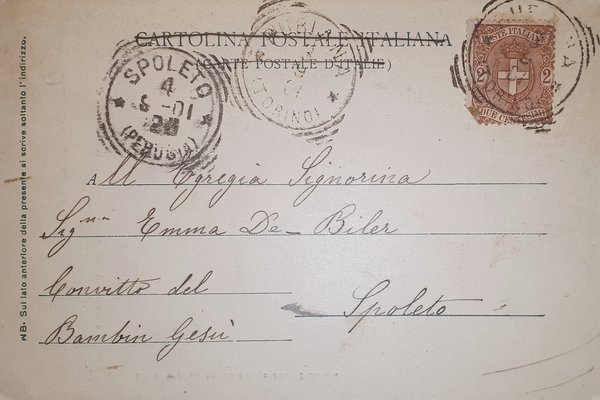 CARTOLINA POSTALE ITALIANA
(CARTE POSTALE D'ITALIE)
SPOLETO
4
01
(PERUGIA)
(TORINO)
POSTE ITALIANE
2 2
DUE CENTESIMI
A Egregia Signorina
Signa Emma De-Biler
Convitto del
Bambin Gesù
Spoleto
NB- Sul lato anteriore della presente si scrive soltanto l'indirizzo.